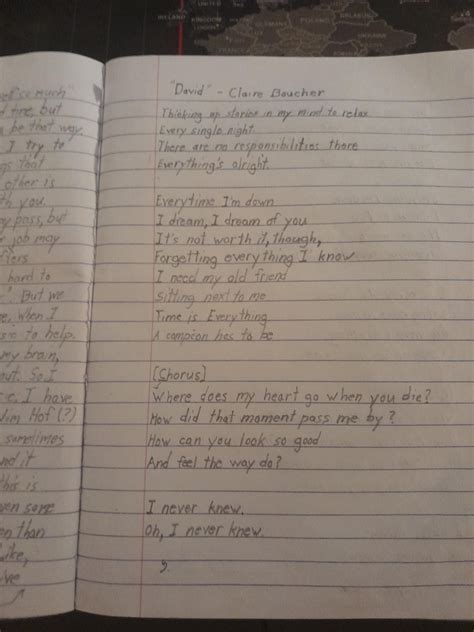 IRELAND
UNITED
KINGDOM
LONDON
POLAND
BELARUS
UKRAINE
FRANCE
"David" - Claire Boucher
Thinking up stories in my mind to relax
Every single night
There are no responsibilities there
Everything's alright.
Everytime I'm down
I dream, I dream of you
It's not worth it, though,
Forgetting everything I know
I need my old friend
Sitting next to me
Time is Everything
A campion hes to be
[Chorus]
Where does my heart go when you die?
How did that moment pass me by?
How can you look so good
And feel the way do?
I never knew.
Oh, I never knew.
so much"
fine, but
be that way.
I try to
that
other is
you.
pass, but
job may
hard to
". But we
, when I
to help.
my brain,
. So I
, I have
Hof (?)
sometimes
it
this is
some
than